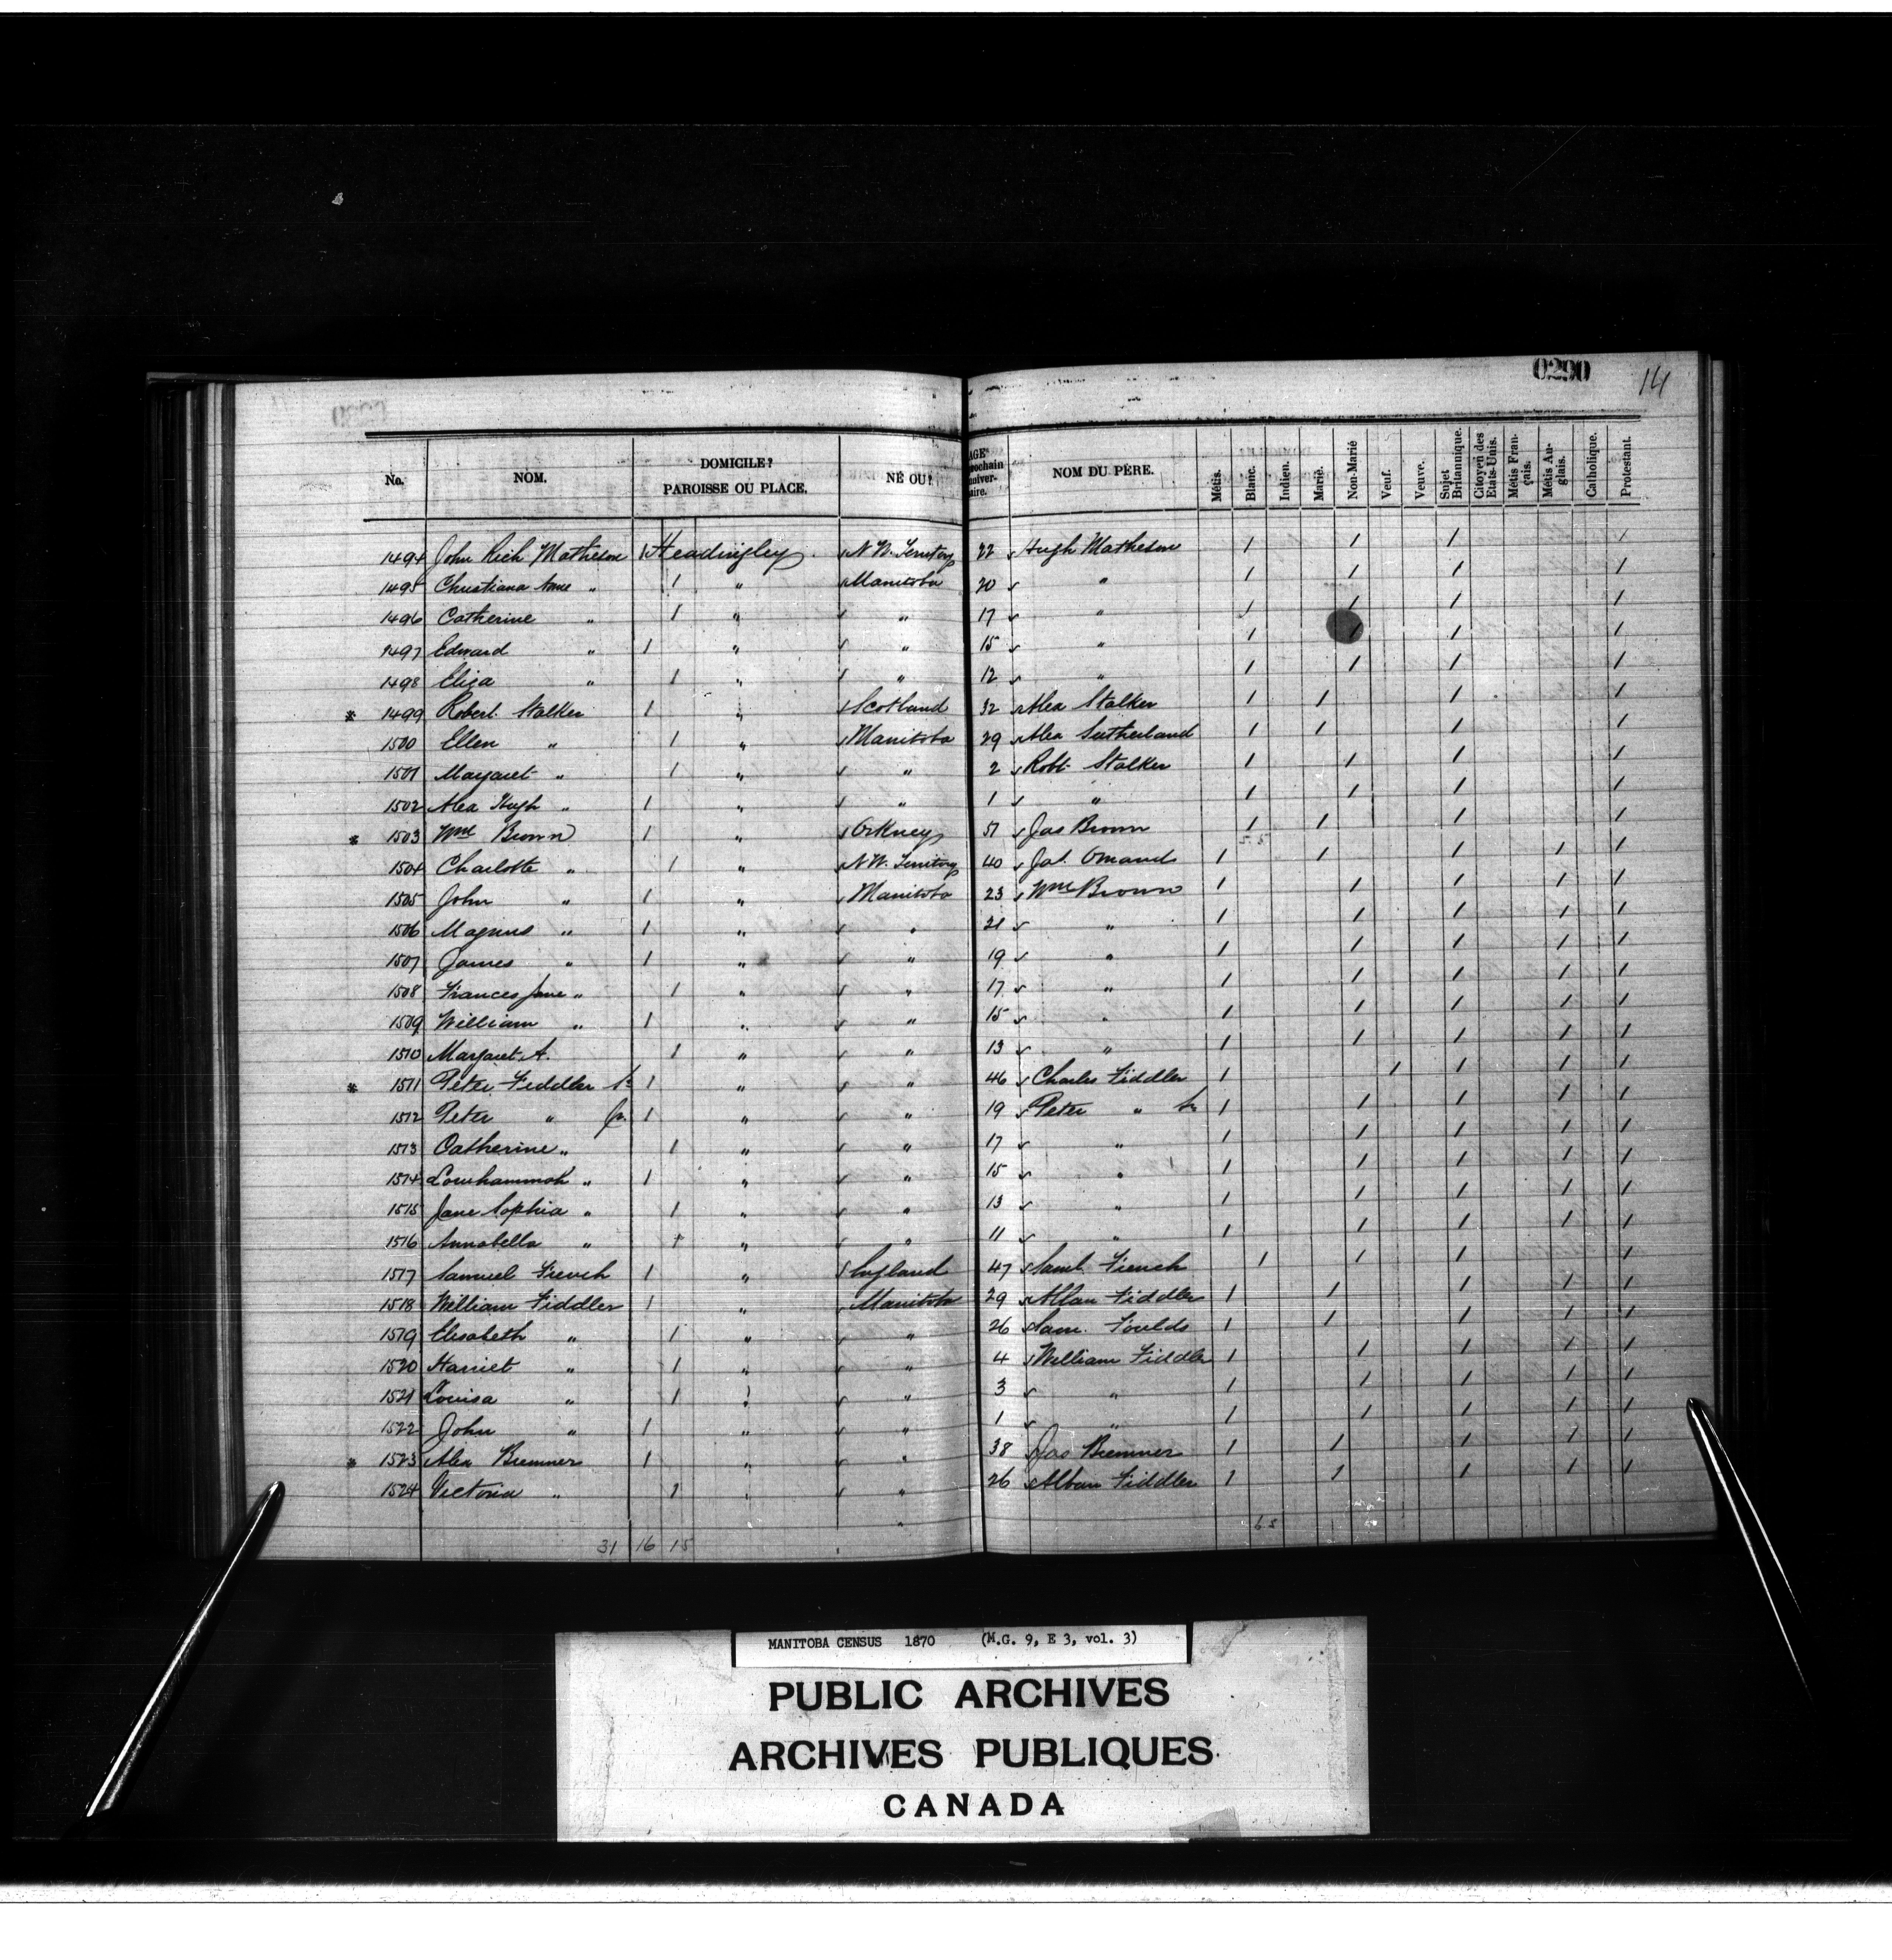 0290
141
No. NOM. DOMICILE? PAROISSE OU PLACE. NÉ OU? AGE prochain anniver- saire. NOM DU PÈRE. Métis. Blanc. Indien. Marié. Non-Marié Veuf. Veuve. Sujet Britannique. Citoyen des Etats-Unis. Métis Fran- çais. Métis An- glais. Catholique. Protestant.
1494 John Rich Matheson 1 Headingley N W. Territory 22 Hugh Matheson 1 1 1 1
1495 Christiana Anne " 1 " Manitoba 20 " 1 1 1 1
1496 Catherine " 1 " " 17 " 1 1 1 1
1497 Edward " 1 " " 15 " 1 1 1 1
1498 Eliza " 1 " " 12 " 1 1 1 1
* 1499 Robert Stalker 1 " Scotland 32 Alex Stalker 1 1 1 1
1500 Ellen " 1 " Manitoba 29 Alex Sutherland 1 1 1 1
1501 Margaret " 1 " " 2 Robt Stalker 1 1 1 1
1502 Alex Hugh " 1 " " 1 " 1 1 1 1
* 1503 Wm Brown 1 " Orkney 51 Jas Brown 1 1 1 1
1504 Charlotte " 1 " N W. Territory 40 Jas. Omand 1 1 1 1 1
1505 John " 1 " Manitoba 23 Wm Brown 1 1 1 1 1
1506 Magnus " 1 " " 21 " 1 1 1 1 1
1507 James " 1 " " 19 " 1 1 1 1 1
1508 Frances Jane " 1 " " 17 " 1 1 1 1 1
1509 William " 1 " " 15 " 1 1 1 1 1
1510 Margaret A. 1 " " 13 " 1 1 1 1 1
* 1511 Peter Fiddler Sr 1 " " 46 Charles Fiddler 1 1 1 1 1
1512 Peter " Jr. 1 " " 19 Peter " Sr 1 1 1 1 1
1513 Catherine " 1 " " 17 " 1 1 1 1 1
1514 " 1 " " 15 " 1 1 1 1 1
1515 Jane Sophia " 1 " " 13 " 1 1 1 1 1
1516 Annabella " 1 " " 11 " 1 1 1 1 1
1517 Samuel French 1 " England 47 Saml. French 1 1 1 1
1518 William Fiddler 1 " Manitoba 29 Allan Fiddler 1 1 1 1 1
1519 Elisabeth " 1 " " 26 Sam. Foulds 1 1 1 1 1
1520 Harriet " 1 " " 4 William Fiddler 1 1 1 1 1
1521 Louisa " 1 " " 3 " 1 1 1 1 1
1522 John " 1 " " 1 " 1 1 1 1 1
* 1523 Alex Bremner 1 " " 38 Jas Bremner 1 1 1 1 1
1524 Victoria " 1 " " 26 Alban Fiddler 1 1 1 1 1
31 16 15
MANITOBA CENSUS 1870 (M.G. 9, E 3, vol. 3)
PUBLIC ARCHIVES
ARCHIVES PUBLIQUES
CANADA